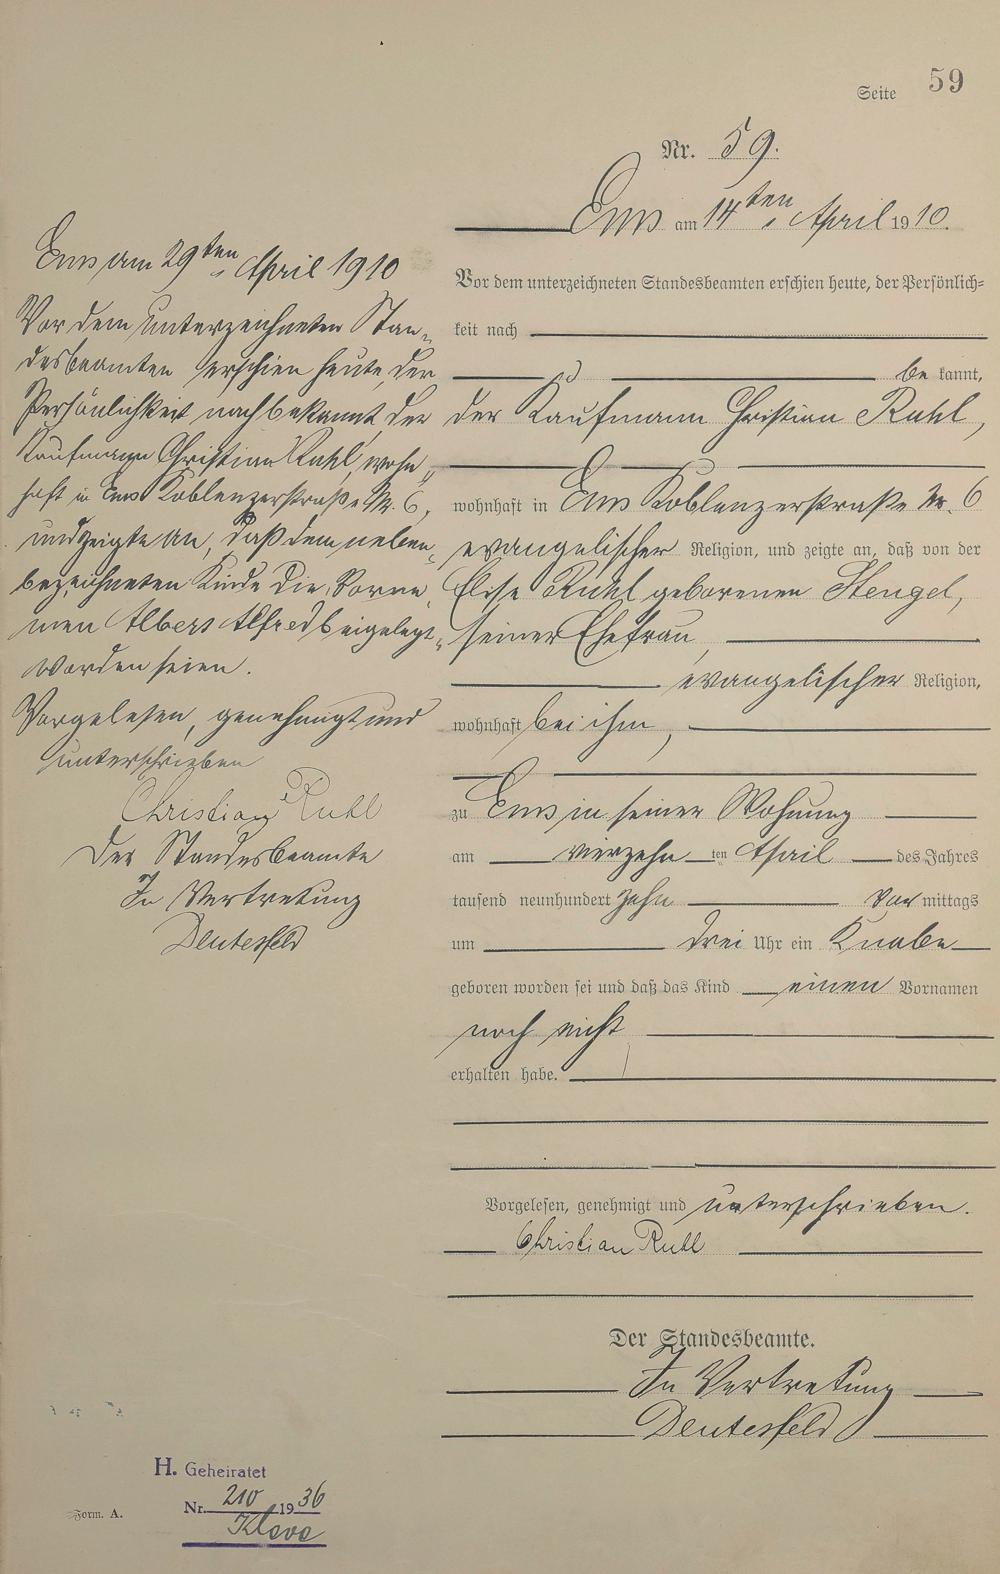 Seite 59
Nr. 59.
Ems am 14ten April 1910.
Vor dem unterzeichneten Standesbeamten erschien heute, der Persönlich-
keit nach
bekannt,
der Kaufmann Christian Ruhl,
wohnhaft in Ems Koblenzerstraße Nr. 6
evangelischer Religion, und zeigte an, daß von der
Elise Ruhl geborenen Stengel,
seiner Ehefrau,
evangelischer Religion,
wohnhaft bei ihm,
zu Ems in seiner Wohnung
am vierzehnten April des Jahres
tausend neunhundert zehn Vormittags
um drei Uhr ein Knabe
geboren worden sei und daß das Kind einen Vornamen
noch nicht
erhalten habe.
Vorgelesen, genehmigt und unterschrieben.
Christian Ruhl
Der Standesbeamte.
In Vertretung
Ems am 29ten April 1910
Vor dem unterzeichneten Stan-
desbeamten erschien heute, der
Persönlichkeit nach bekannt, der
Kaufmann Christian Ruhl, wohn-
haft in Ems Koblenzerstraße Nr. 6,
und zeigte an, daß dem neben-
bezeichneten Kinde die Vorna-
men Albert Alfred beigelegt
worden seien.
Vorgelesen, genehmigt und
unterschrieben
Christian Ruhl
Der Standesbeamte
In Vertretung
H. Geheiratet
Nr. 210 1936
Kleve
Form. A.